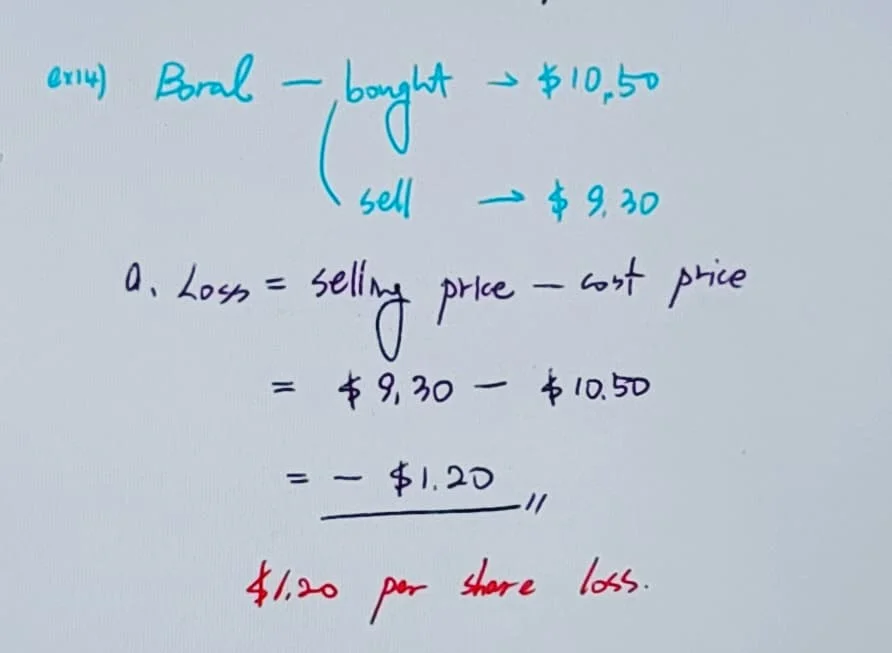 ex14) Boral — bought → $10.50
sell → $9.30
a. Loss = selling price — cost price
= $9.30 — $10.50
= — $1.20 //
$1.20 per share loss.